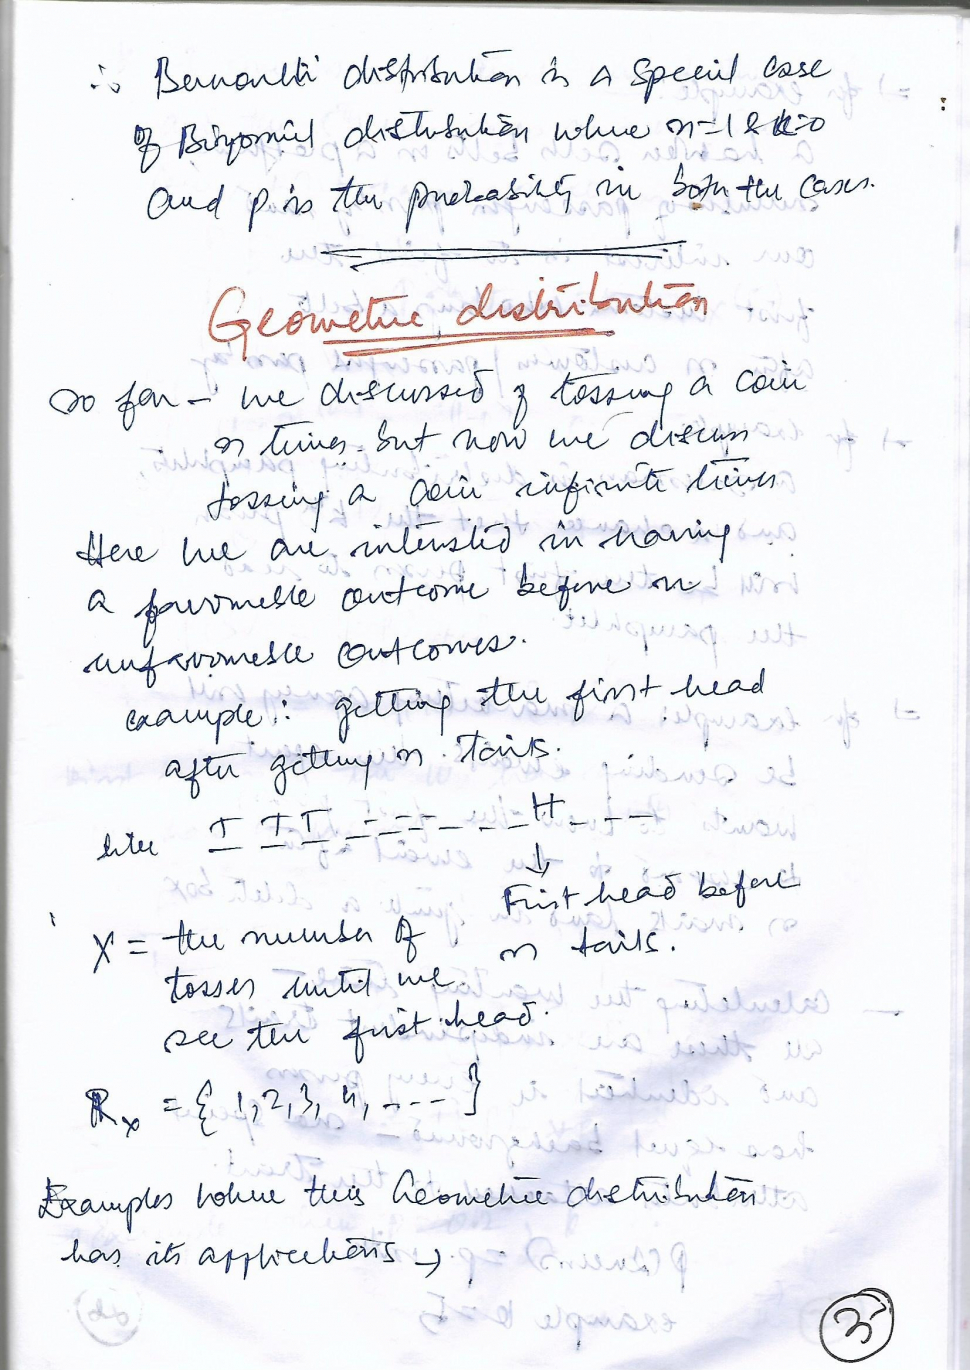 ∴ Bernoulli distribution is a special case
of Binomial distribution where n=1 & k=0
and p is the probability in both the cases.
Geometric distribution
so far - we discussed of tossing a coin
n times. but now we discuss
tossing a coin infinite times
Here we are intersted in having
a favourable outcome before n
unfavourable outcomes.
example: getting the first head
after getting n tails.
like T T T _ _ _ _ _ _ H _ _ _
↓
First head before
n tails.
X = the number of
tosses until we
see the first head.
Rx = { 1, 2, 3, 4, ---- }
Examples where this Geometric distribution
has its applications →
3